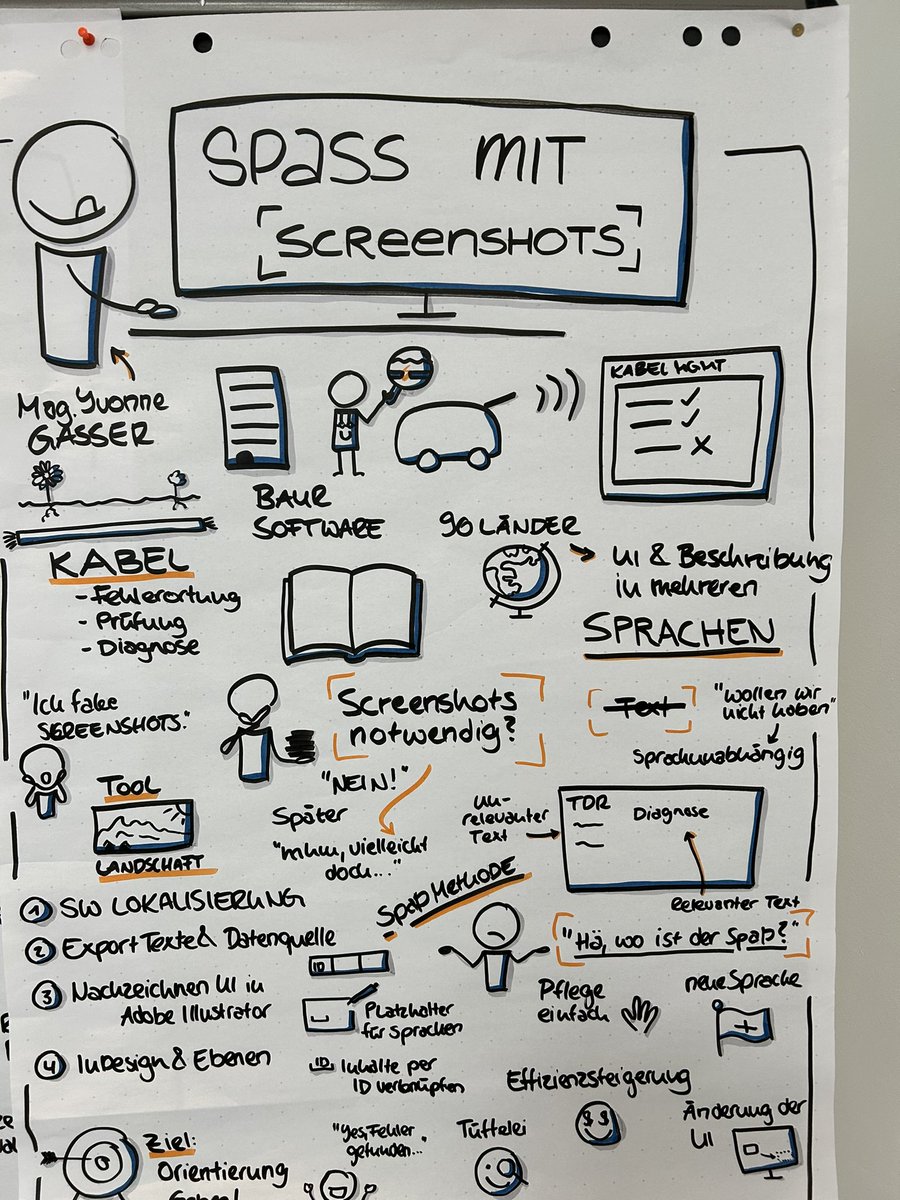 SPASS MIT
SCREENSHOTS
Mag. Yvonne
GASSER
KABEL MGMT
BAUR
SOFTWARE
90 LÄNDER
UI & Beschreibung
in mehreren
SPRACHEN
KABEL
- Fehlerortung
- Prüfung
- Diagnose
"Ich fake
SCREENSHOTS."
Screenshots
notwendig?
Text
"wollen wir
nicht haben"
Sprachunabhängig
"NEIN!"
Später
"mhm, vielleicht
doch..."
TOOL
LANDSCHAFT
un-
relevanter
Text
TDR
Diagnose
Relevanter Text
1 SW LOKALISIERUNG
2 Export Texte & Datenquelle
3 Nachzeichnen UI in
Adobe Illustrator
4 InDesign & Ebenen
Spaß METHODE
ID
Platzhalter
für Sprachen
ID Inhalte per
ID verknüpfen
"Hä, wo ist der Spaß?"
Pflege
einfach
neue Sprache
Effizienzsteigerung
Änderung der
UI
Ziel:
Orientierung
"Yes, Fehler
gefunden..."
Tüftelei